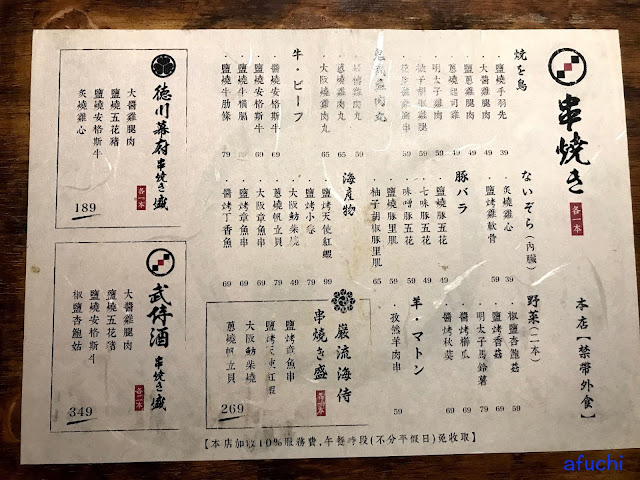 串焼き
各一本
本店【禁帶外食】
焼き鳥
・鹽燒手羽先 39
・大醬雞腿肉 49
・鹽蔥雞腿肉 49
・蔥燒起司雞 49
・明太子雞肉 59
・柚子胡椒雞腿 59
雞肉丸
・蔥燒雞肉丸 65
・大阪燒雞肉丸 65
牛・ビーフ
・醬燒安格斯牛 69
・鹽燒安格斯牛 69
・鹽燒牛橫膈
・鹽燒牛肋條 79
ないぞう(内臓)
・炙燒雞心 39
・鹽烤雞軟骨 59
豚バラ
・鹽燒豚五花 49
・七味豚五花 49
・味噌豚五花 59
・鹽燒豚里肌 59
・柚子胡椒豚里肌 65
海産物
・鹽烤天使紅蝦 99
・鹽烤小卷
・大阪魴柴燒
・蔥燒帆立貝 79
・大阪章魚串
・鹽烤章魚串 69
・醬烤丁香魚 69
野菜(二本)
・椒鹽杏鮑菇 59
・鹽烤香菇 59
・明太子馬鈴薯 79
・醬烤櫛瓜 69
・醬烤秋葵 69
羊・マトン
・孜然羊肉串 59
巖流海侍
串焼き盛
鹽烤章魚串
鹽烤天使紅蝦
大阪魴柴燒
蔥燒帆立貝
269
徳川幕府
串焼き盛
各一本
大醬雞腿肉
鹽燒五花豬
鹽燒安格斯牛
炙燒雞心
189
武侍酒
串焼き盛
各二本
大醬雞腿肉
鹽燒五花豬
鹽燒安格斯牛
椒鹽杏鮑菇
349
【本店加收10%服務費,午餐時段(不分平假日)免收取】
afuchi